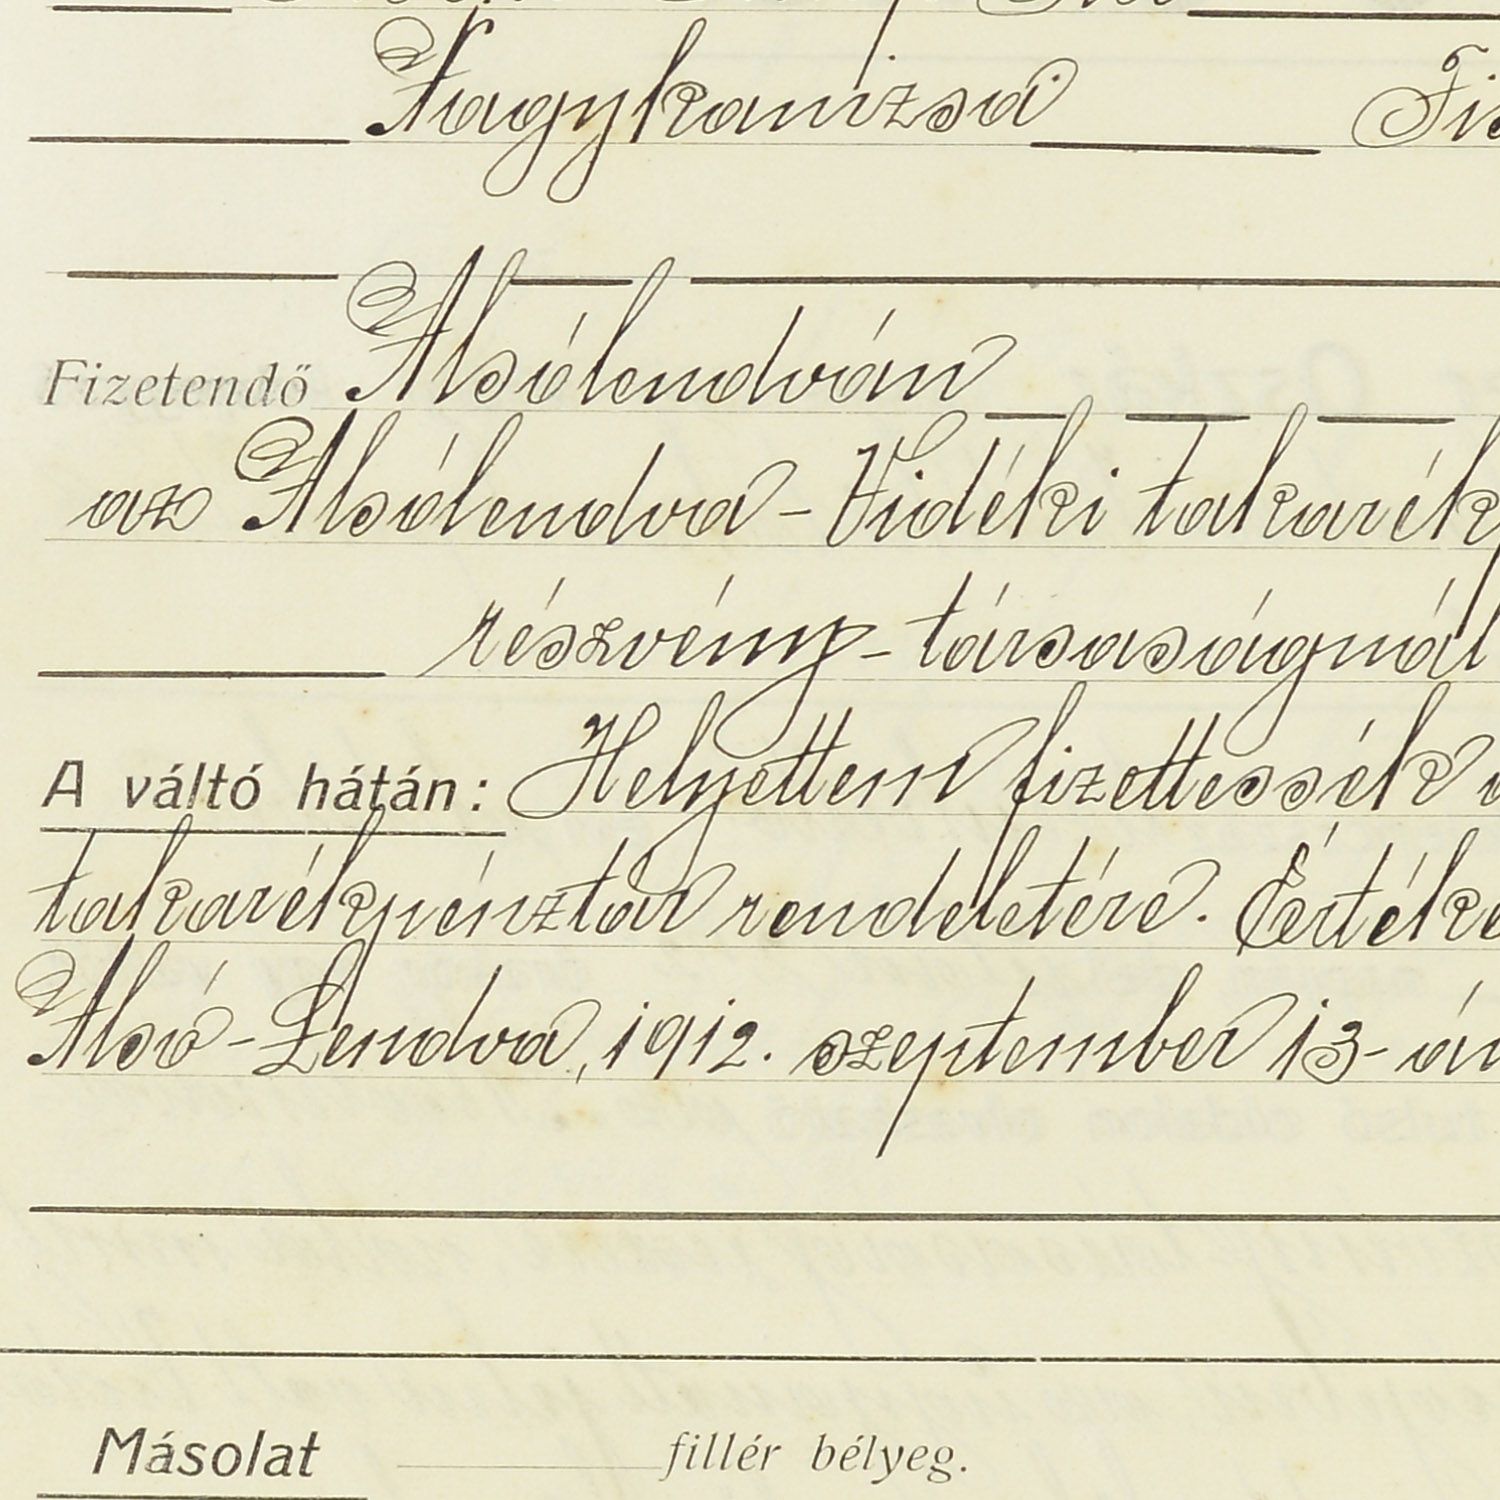 Nagykanizsa
Fizetendő Alsólendván
az Alsólendva-Vidéki takarék
részvény-társaságnál
A váltó hátán: Helyettem fizettessék
takarékpénztár rendeletére. Értéke
Alsó-Lendva, 1912. szeptember 13-án
Másolat fillér bélyeg.